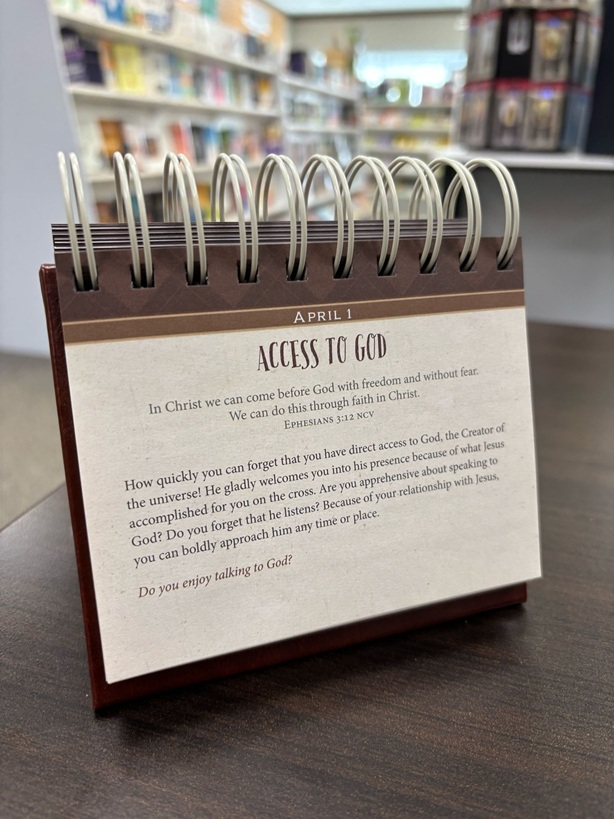 APRIL 1
ACCESS TO GOD
In Christ we can come before God with freedom and without fear.
We can do this through faith in Christ.
EPHESIANS 3:12 NCV
How quickly you can forget that you have direct access to God, the Creator of
the universe! He gladly welcomes you into his presence because of what Jesus
accomplished for you on the cross. Are you apprehensive about speaking to
God? Do you forget that he listens? Because of your relationship with Jesus,
you can boldly approach him any time or place.
Do you enjoy talking to God?